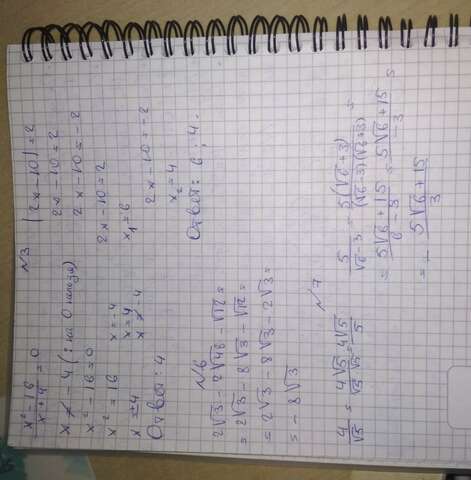 x²-16/x+4 = 0
x ≠ -4 (: на 0 нельзя)
x² - 16 = 0
x² = 16
x = ±4 x = -4
x = 4
x ≠ -4
Ответ: 4
№3 |2x - 10| = 2
2x - 10 = 2
2x - 10 = -2
2x - 10 = 2
x₁ = 6
2x - 10 = -2
x₂ = 4
Ответ: 6; 4.
№6
2√3 - 2√48 - √12 =
= 2√3 - 8√3 - √12 =
= 2√3 - 8√3 - 2√3 =
= -8√3
№7
4/√5 = 4√5/√5 √5 = 4√5/5
5/√6-3 = 5(√6+3)/(√6-3)(√6+3) =
= 5√6+15/6-9 = 5√6+15/-3 =
= - 5√6+15/3